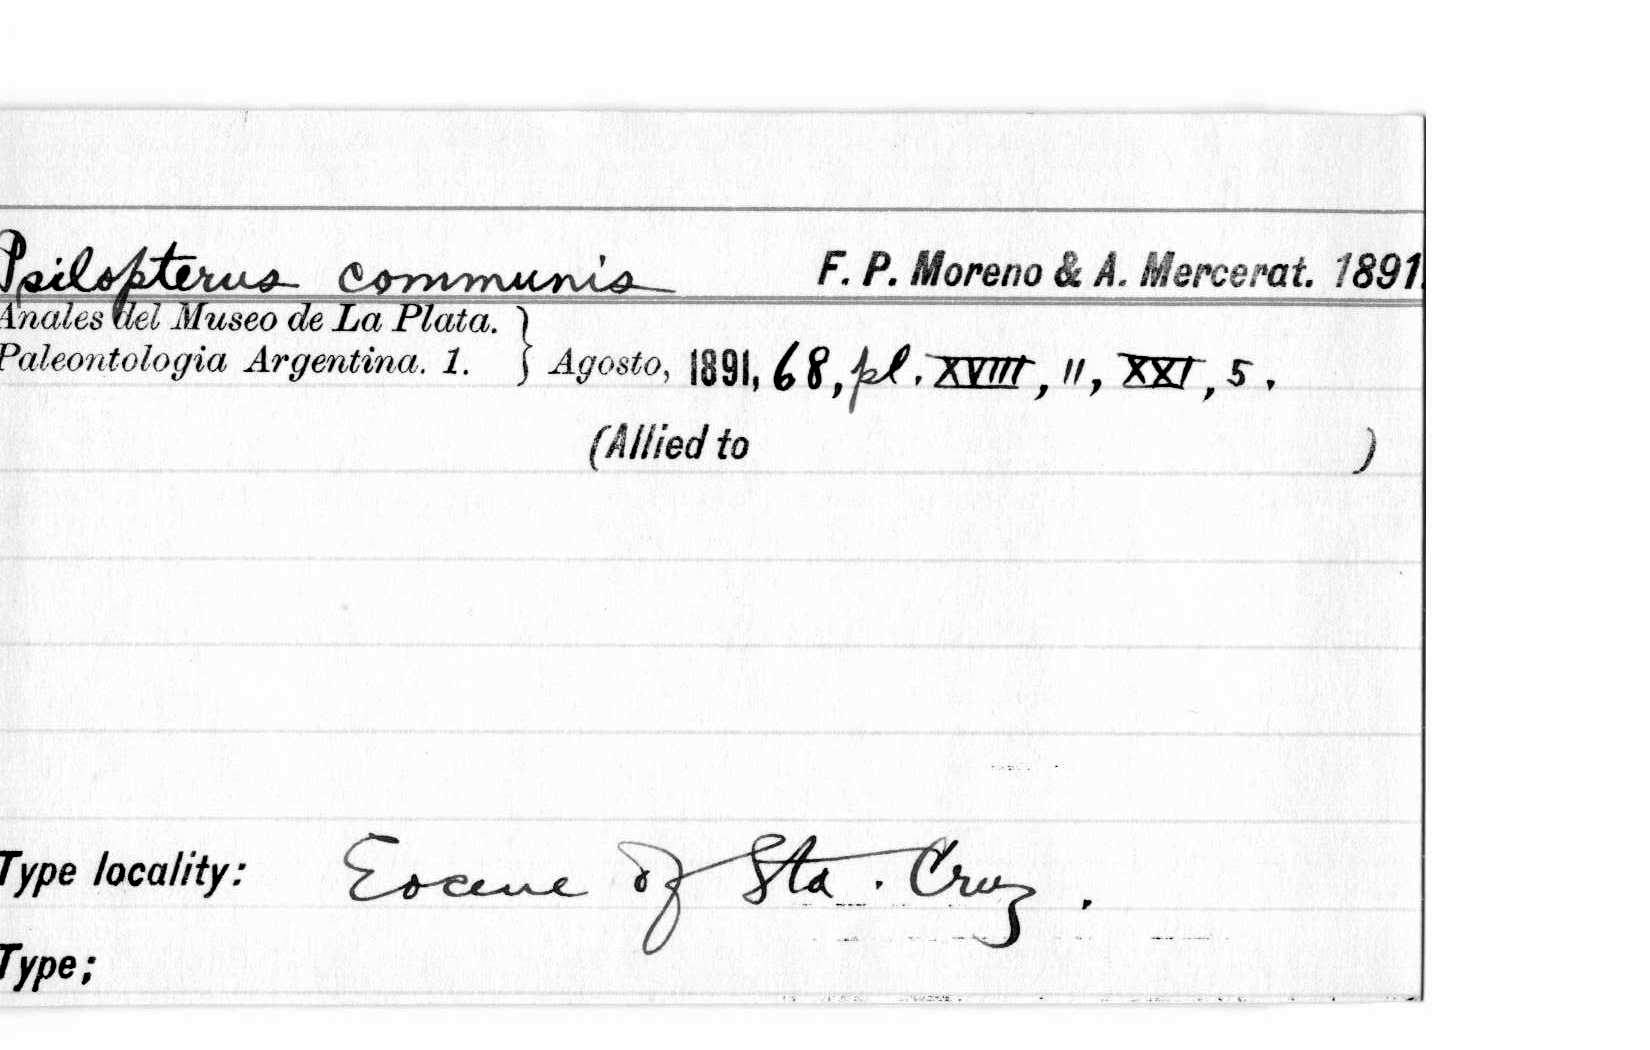 Psilopterus communis F. P. Moreno & A. Mercerat. 1891.
Anales del Museo de La Plata.
Paleontologia Argentina. 1. } Agosto, 1891, 68, pl. XVIII, 11, XXI, 5.
(Allied to )
Type locality: Eocene of Sta. Cruz.
Type;